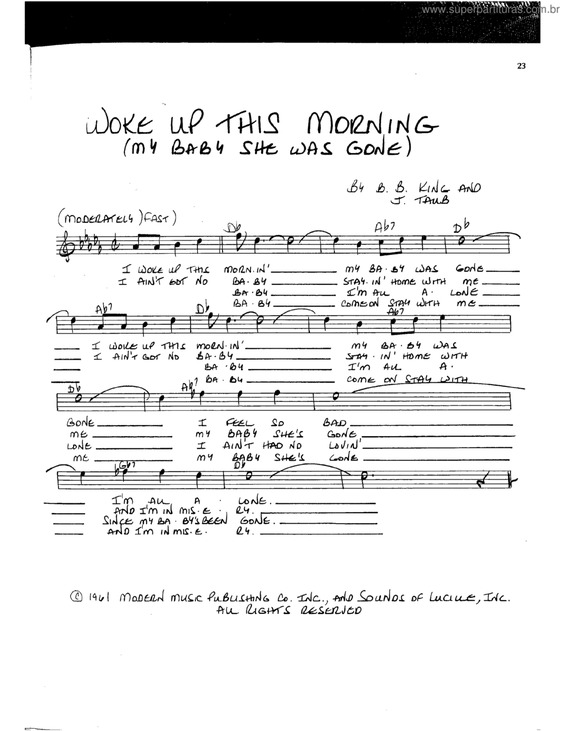 www.superpartituras.com.br
23
WOKE UP THIS MORNING
(MY BABY SHE WAS GONE)
BY B. B. KING AND
J. TAUB
(MODERATELY FAST)
Db Ab7 Db
I WOKE UP THIS MORN.IN' MY BA.BY WAS GONE
I AIN'T GOT NO BA.BY STAY.IN' HOME WITH ME
BA.BY I'M ALL A. LONE
BA.BY COME ON STAY WITH ME
Ab7 Db Ab7
I WOKE UP THIS MORN.IN' MY BA.BY WAS
I AIN'T GOT NO BA.BY STAY.IN' HOME WITH
BA.BY I'M ALL A.
BA.BY COME ON STAY WITH
Db Ab7
GONE I FEEL SO BAD
ME MY BABY SHE'S GONE
LONE I AIN'T HAD NO LOVIN'
ME MY BABY SHE'S GONE
Gb7 Db
I'M ALL A. LONE.
AND I'M IN MIS.E. RY.
SINCE MY BA.BY'S BEEN GONE.
AND I'M IN MIS.E. RY.
© 1961 MODERN MUSIC PUBLISHING CO. INC., AND SOUNDS OF LUCILLE, INC.
ALL RIGHTS RESERVED